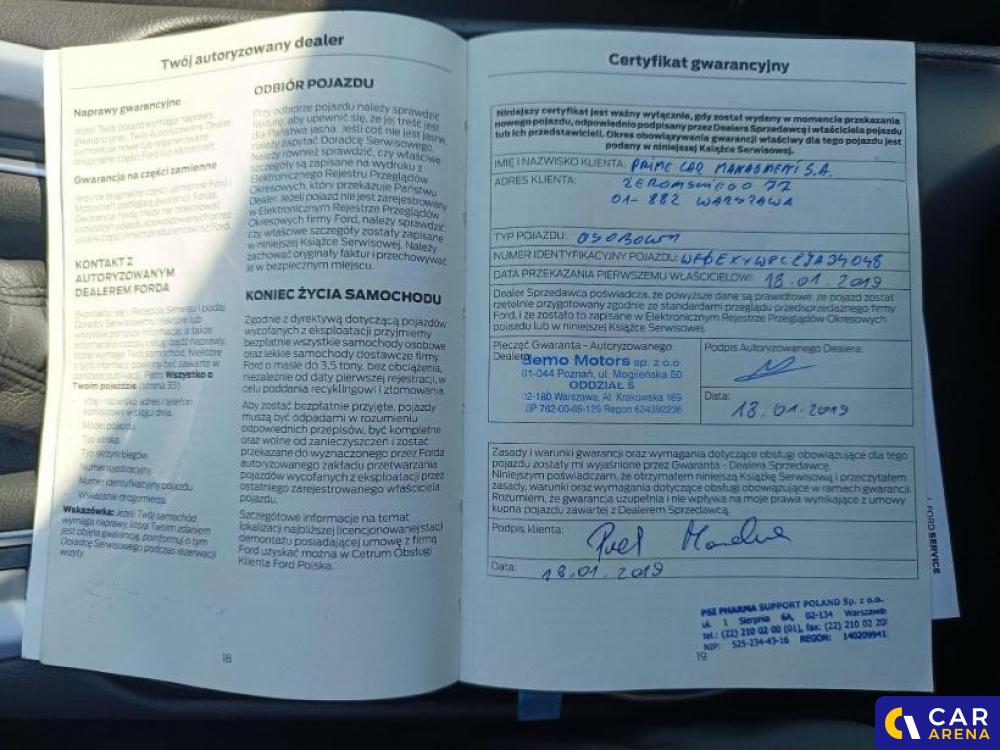 Twój autoryzowany dealer
Naprawy gwarancyjne
Jeżeli Twój pojazd wymaga naprawy
gwarancyjnej, Twój Autoryzowany Dealer
zamontuje nowe lub regenerowane
oryginalne części Ford lub Motorcraft.
Gwarancja na części zamienne
KONTAKT Z
AUTORYZOWANYM
DEALEREM FORDA
Skontaktuj się z Recepcją Serwisu i podaj
Wszystko o
Twoim pojeździe (strona 33).
Imię i nazwisko, adres i telefon
kontaktowy w ciągu dnia.
Model pojazdu.
Typ silnika.
Typ skrzyni biegów.
Numer rejestracyjny.
Numer identyfikacyjny pojazdu.
Wskazanie drogomierza.
Wskazówka: Jeżeli Twój samochód
wymaga naprawy, która Twoim zdaniem
jest objęta gwarancją, poinformuj o tym
Doradcę Serwisowego podczas rezerwacji
wizyty.
ODBIÓR POJAZDU
Przy odbiorze pojazdu należy sprawdzić
fakturę, aby upewnić się, że jej treść jest
dla Państwa jasna. Jeśli coś nie jest jasne,
należy zapytać Doradcę Serwisowego.
Należy również sprawdzić, czy właściwe
szczegóły są zapisane na wydruku z
Elektronicznego Rejestru Przeglądów
Okresowych, który przekazuje Państwu
Dealer. Jeżeli pojazd nie jest zarejestrowany
w Elektronicznym Rejestrze Przeglądów
Okresowych firmy Ford, należy sprawdzić,
czy właściwe szczegóły zostały zapisane
w niniejszej Książce Serwisowej. Należy
zachować oryginały faktur i przechowywać
je w bezpiecznym miejscu.
KONIEC ŻYCIA SAMOCHODU
Zgodnie z dyrektywą dotyczącą pojazdów
wycofanych z eksploatacji przyjmiemy
bezpłatnie wszystkie samochody osobowe
oraz lekkie samochody dostawcze firmy
Ford o masie do 3,5 tony, bez obciążenia,
niezależnie od daty pierwszej rejestracji, w
celu poddania recyklingowi i złomowania.
Aby zostać bezpłatnie przyjęte, pojazdy
muszą być odpadami w rozumieniu
odpowiednich przepisów, być kompletne
oraz wolne od zanieczyszczeń i zostać
przekazane do wyznaczonego przez Forda
autoryzowanego zakładu przetwarzania
pojazdów wycofanych z eksploatacji przez
ostatniego zarejestrowanego właściciela
pojazdu.
Szczegółowe informacje na temat
lokalizacji najbliższej licencjonowanej stacji
demontażu posiadającej umowę z firmą
Ford uzyskać można w Cetrum Obsługi
Klienta Ford Polska.
18
Certyfikat gwarancyjny
Niniejszy certyfikat jest ważny wyłącznie, gdy został wydany w momencie przekazania
nowego pojazdu, odpowiednio podpisany przez Dealera Sprzedawcę i właściciela pojazdu
lub ich przedstawicieli. Okres obowiązywania gwarancji właściwy dla tego pojazdu jest
podany w niniejszej Książce Serwisowej.
IMIĘ I NAZWISKO KLIENTA: PRIME CAR MANAGMENT S.A.
ADRES KLIENTA: ŻEROMSKIEGO 77
01-882 WARSZAWA
TYP POJAZDU: OSOBOWY
NUMER IDENTYFIKACYJNY POJAZDU: WF0EXXWPCEJA34048
DATA PRZEKAZANIA PIERWSZEMU WŁAŚCICIELOWI: 18.01.2019
Dealer Sprzedawca poświadcza, że powyższe dane są prawidłowe, że pojazd został
rzetelnie przygotowany zgodnie ze standardami przeglądu przedsprzedażnego firmy
Ford, i że zostało to zapisane w Elektronicznym Rejestrze Przeglądów Okresowych
pojazdu lub w niniejszej Książce Serwisowej.
Pieczęć Gwaranta - Autoryzowanego
Dealera:
Bemo Motors sp. z o.o
61-044 Poznań, ul. Mogileńska 50
ODDZIAŁ 5
02-180 Warszawa, Al. Krakowska 169
NIP 782-00-69-129 Regon 634392236
Podpis Autoryzowanego Dealera:
Data:
18.01.2019
Zasady i warunki gwarancji oraz wymagania dotyczące obsługi obowiązujące dla tego
pojazdu zostały mi wyjaśnione przez Gwaranta - Dealera Sprzedawcę.
Niniejszym poświadczam, że otrzymałem niniejszą Książkę Serwisową i przeczytałem
zasady, warunki oraz wymagania dotyczące obsługi obowiązujące w ramach gwarancji.
Rozumiem, że gwarancja uzupełnia i nie wpływa na moje prawa wynikające z umowy
kupna pojazdu zawartej z Dealerem Sprzedawcą.
Podpis klienta:
Data: 18.01.2019
PSI PHARMA SUPPORT POLAND Sp. z o.o.
ul. 1 Sierpnia 6A, 02-134 Warszawa
tel.: (22) 210 02 00 (01), fax: (22) 210 02 20
NIP: 525-234-43-16 REGON: 140209941
19
FORD SERVICE
CAR
ARENA